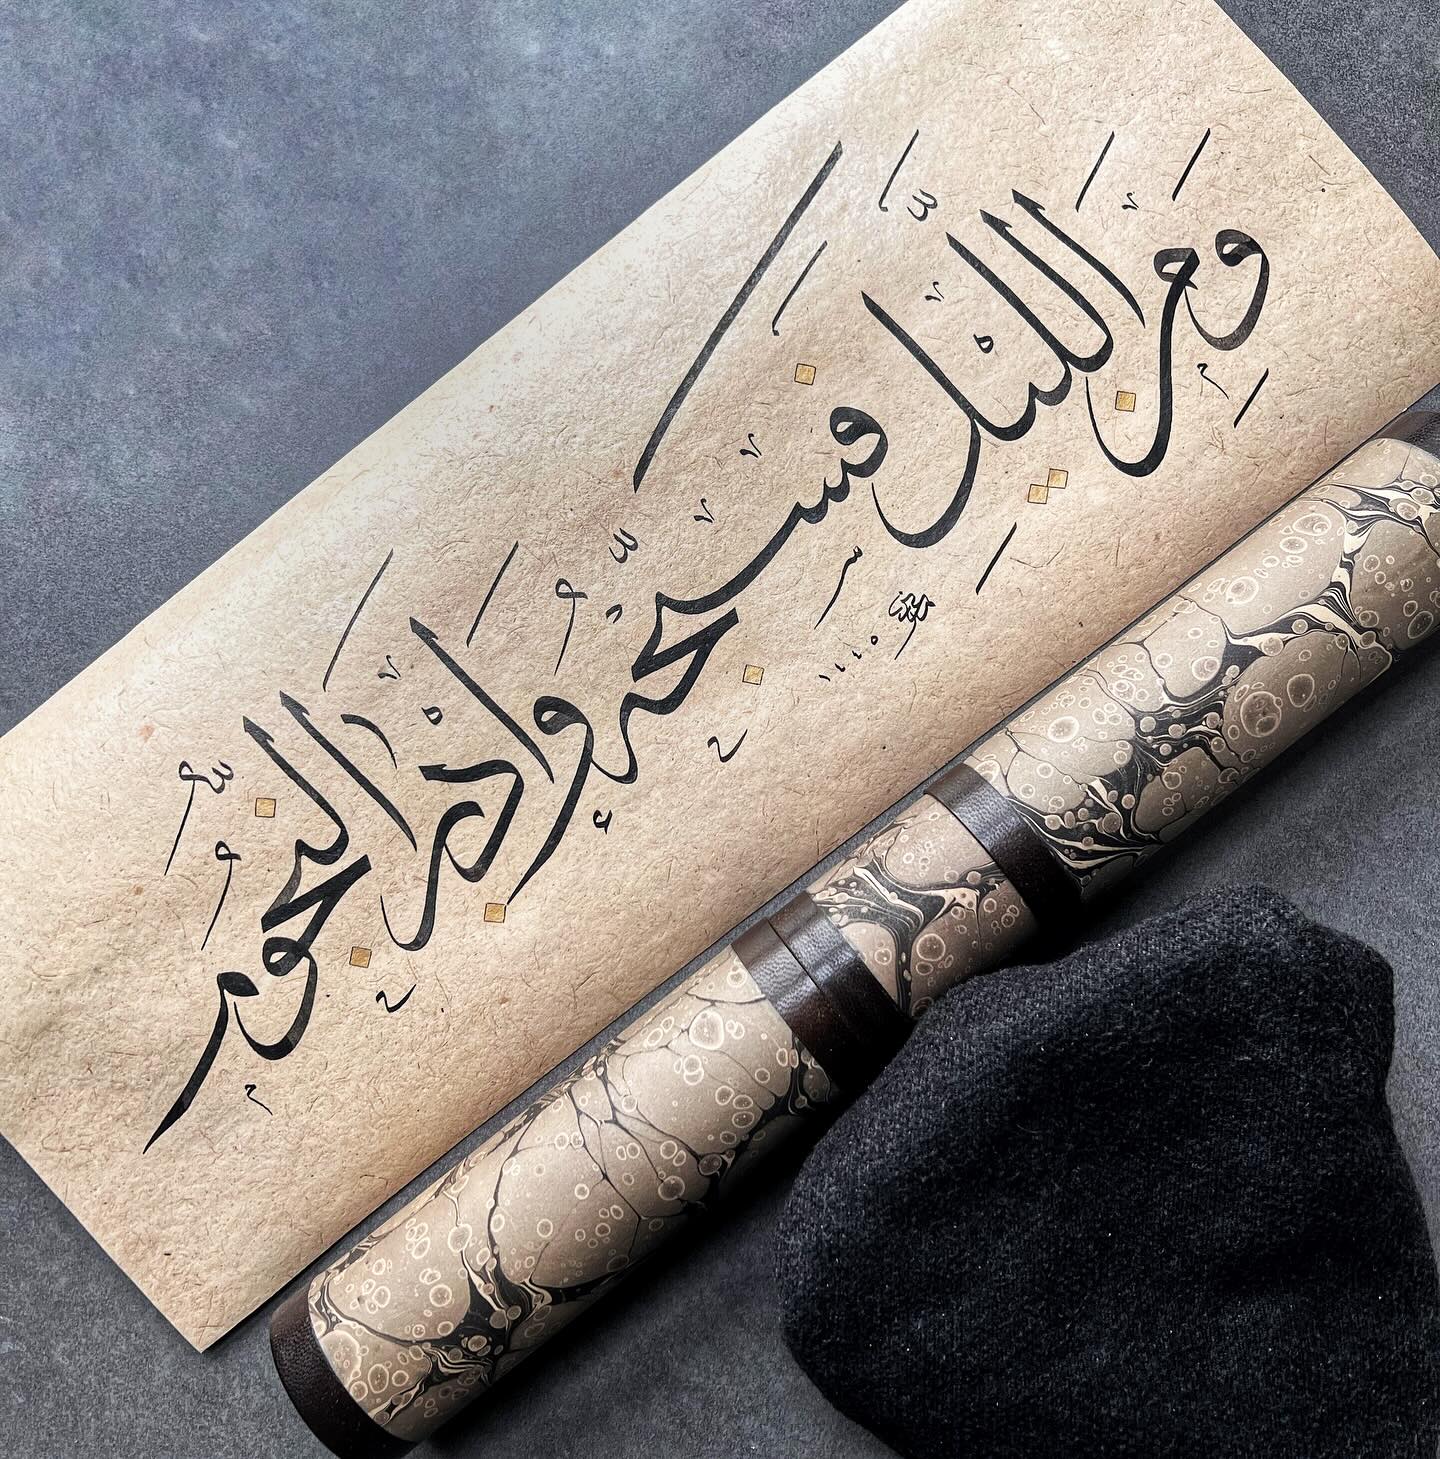 وَمِنَ اللَّيْلِ فَسَبِّحْهُ وَإِدْبَارَ النُّجُومِ
١٤٤٥